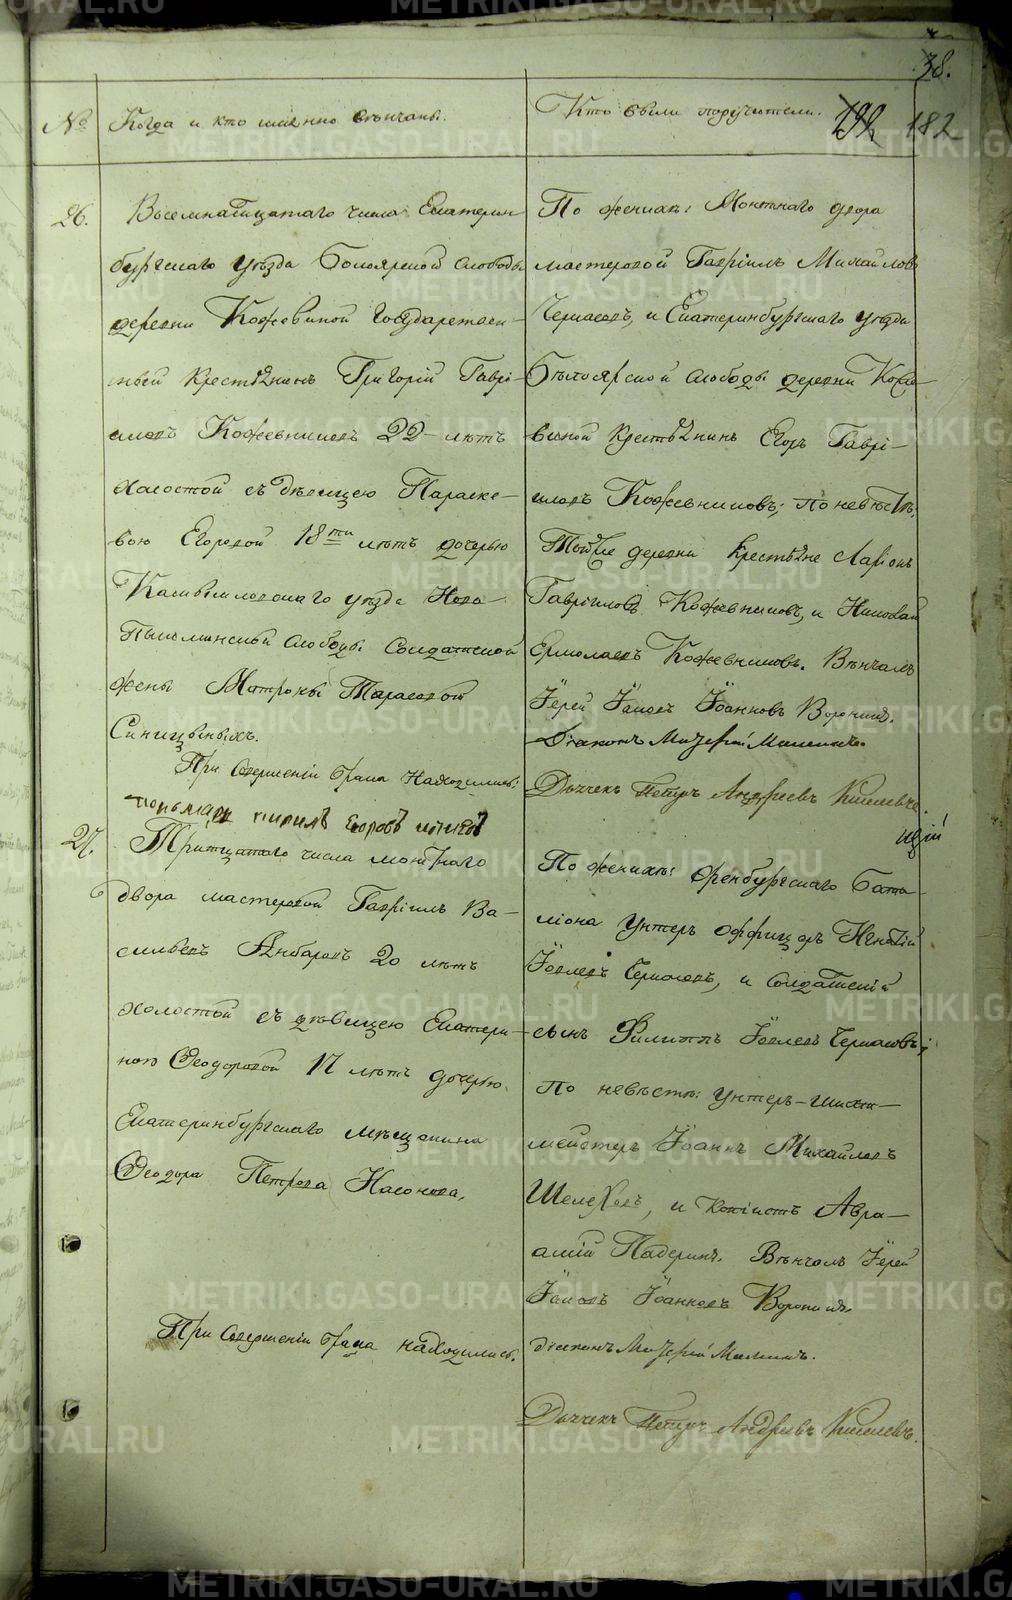 38.
№ Когда и кто именно венчаны.
Кто были поручители.
182
26.
Восемнатцатаго числа Екатерин-
бургскаго уѣзда Бѣлоярской слободы
деревни Кожевиной Государствен-
ный крестьянинъ Григорій Гаврі-
иловъ Кожевниковъ 22 лѣтъ
холостой съ дѣвицею Параске-
вою Егоровой 18ти лѣтъ дочерью
Камышловскаго уѣзда Ново
Пышминской слободы Солдатской
жены Матроны Тарасовой
Синицыныхъ.
При Совершеніи брака находились:
пономарь Егоровъ
По женихѣ: Монетнаго двора
мастеровой Гавріилъ Михайловъ
Черкасовъ, и Екатеринбургскаго уѣзда
Бѣлоярской слободы деревни Коже-
виной Крестьянинъ Егоръ Гаврі-
иловъ Кожевниковъ; По невѣстѣ,
Тойже деревни Крестьяне Ларіонъ
Гавріиловъ Кожевниковъ, и Николай
Ермолаевъ Кожевниковъ. Вѣнчалъ
Іерей Іаковъ Іоанновъ Воронинъ.
Діаконъ
Дьячекъ Петръ Андреевъ Киселевъ.
27.
Тритцатаго числа монетнаго
двора мастеровой Гавріилъ Ва-
сильевъ Анбаровъ 20 лѣтъ
холостой съ дѣвицею Екатери-
ною Ѳеодоровой 17 лѣтъ дочерью
Екатеринбургскаго мѣщанина
Ѳеодора Петрова Насонова.
При Совершеніи брака находились.
По женихѣ: Оренбургскаго бата-
ліона Унтеръ офферъ
Іовлевъ, и Солдатскій
сынъ Филиппъ Іовлевъ;
По невѣстѣ: Унтеръ-шихт-
мейстеръ Іоаннъ Михайловъ
Шелеховъ, и Копіистъ Авра-
амій Падеринъ. Вѣнчалъ Іерей
Іаковъ Іоанновъ Воронинъ.
діаконъ
Дьячекъ Петръ Андреевъ Киселевъ.
METRIKI.GASO-URAL.RU